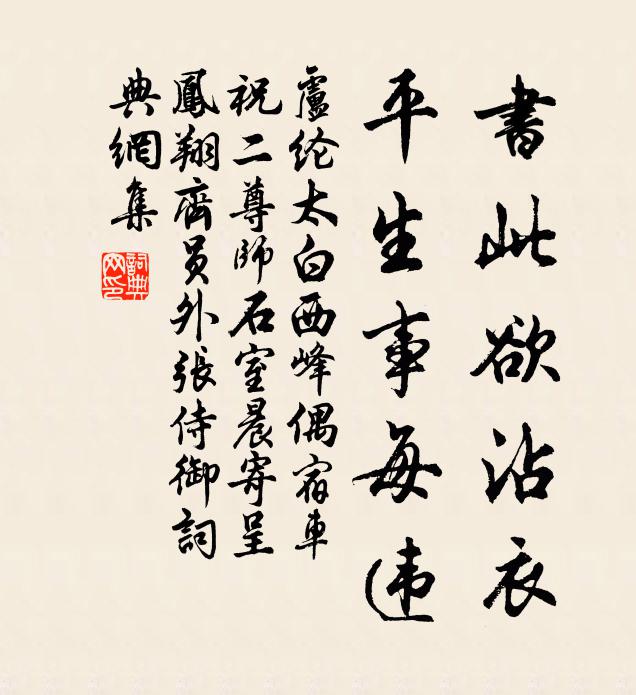 書此欲沾衣
平生事每违
盧纶太白西峰偶宿車
祝二尊師石室晨寄呈
鳳翔齊员外張侍御詞
典網集
詞典网印